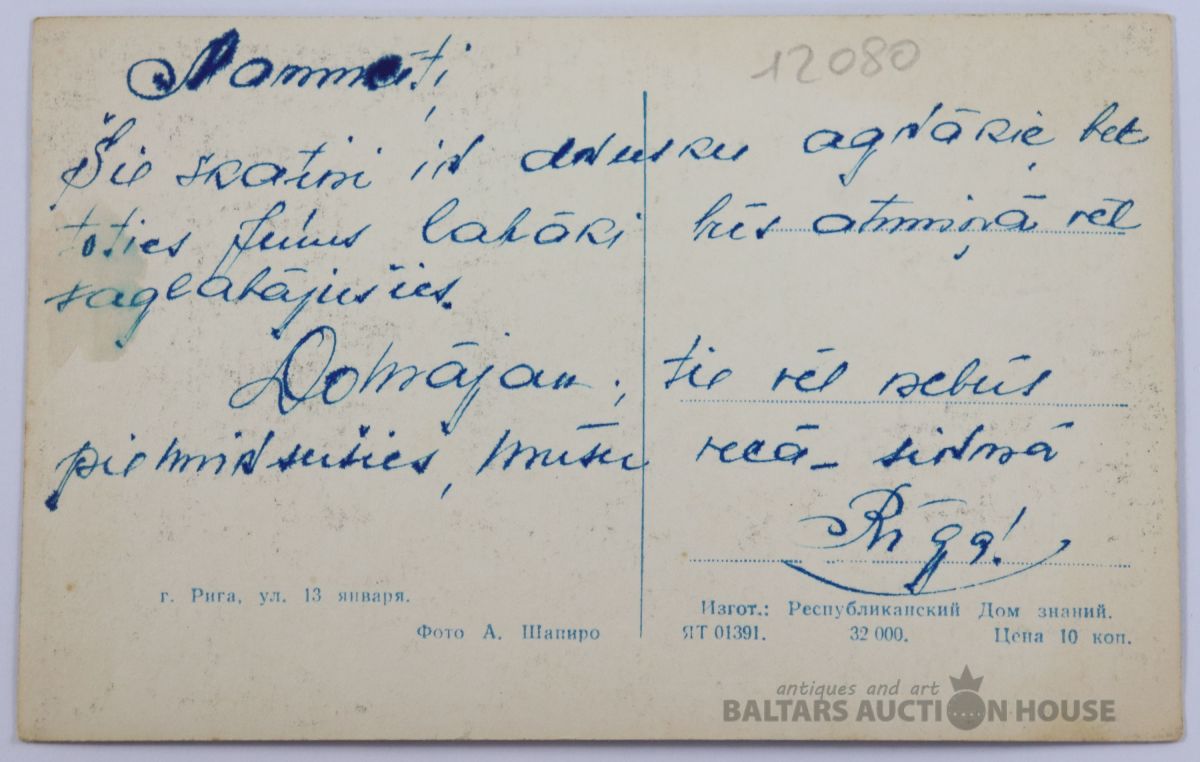 12080
Mammīti,
Šie skatiņi ir drusku agrākie, bet
toties Jums labāki būs atmiņā vēl
saglabājušies.
Domājam, tie vēl nebūs
piemirsušies, mūsu vecā - sirmā
Rīga!
г. Рига, ул. 13 января.
Фото А. Шапиро
Изгот.: Республиканский Дом знаний.
ЯТ 01391. 32 000. Цена 10 коп.
antiques and art
BALTARS AUCTION HOUSE